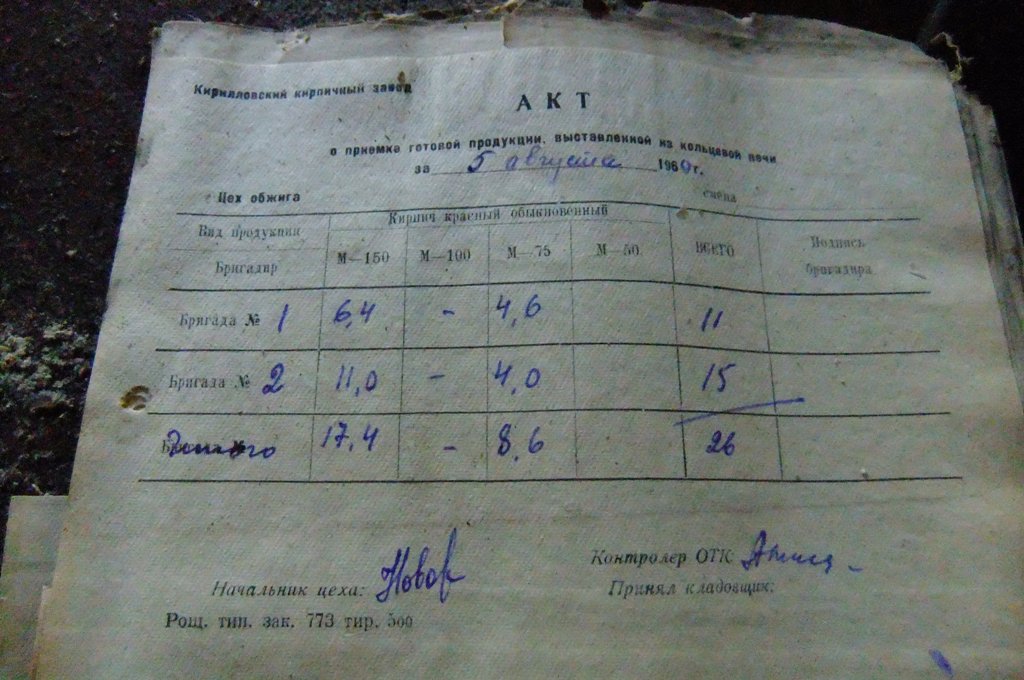 Кирилловский кирпичный завод
АКТ
о приемка готовой продукции, выставленной из кольцевой печи
за 5 августа 1960 г.
Цех обжига смена
Вид продукции Кирпич красный обыкновенный
Бригадир М—150 М—100 М—75 М—50 ВСЕГО Подпись бригадира
Бригада № 1 6,4 - 4,6 11
Бригада № 2 11,0 - 4,0 15
Итого 17,4 - 8,6 26
Контролер ОТК
Начальник цеха:
Принял кладовщик:
Рощ. тип. зак. 773 тир. 500